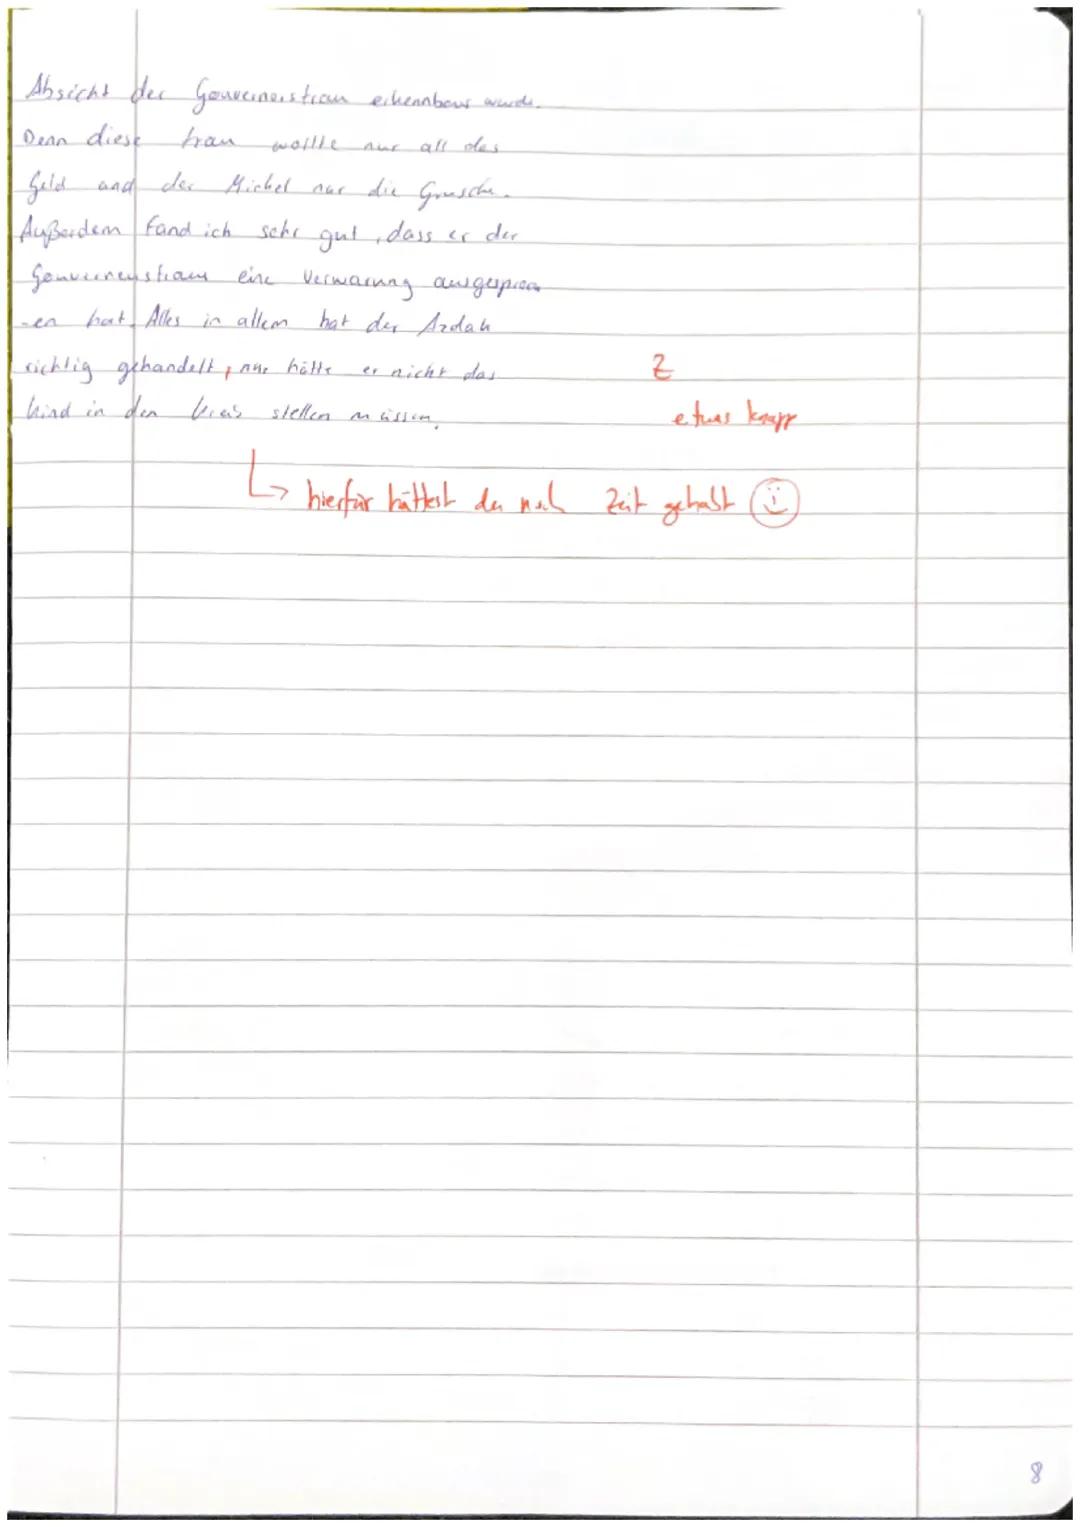 Absicht der Gouverneursfrau erkennbar wurde.
Denn diese Frau wollte nur all das
Geld und der Michel nur die Grusche.
Außerdem Fand ich sehr gut, dass er der
Gouverneursfrau eine Verwarnung ausgesproch
-en hat. Alles in allem hat der Azdak
richtig gehandelt, nur hätte er nicht das
Z
Kind in den Kreis stellen müssen.
etwas knapp
↳ hierfür hättest du noch Zeit gehabt ☺
8